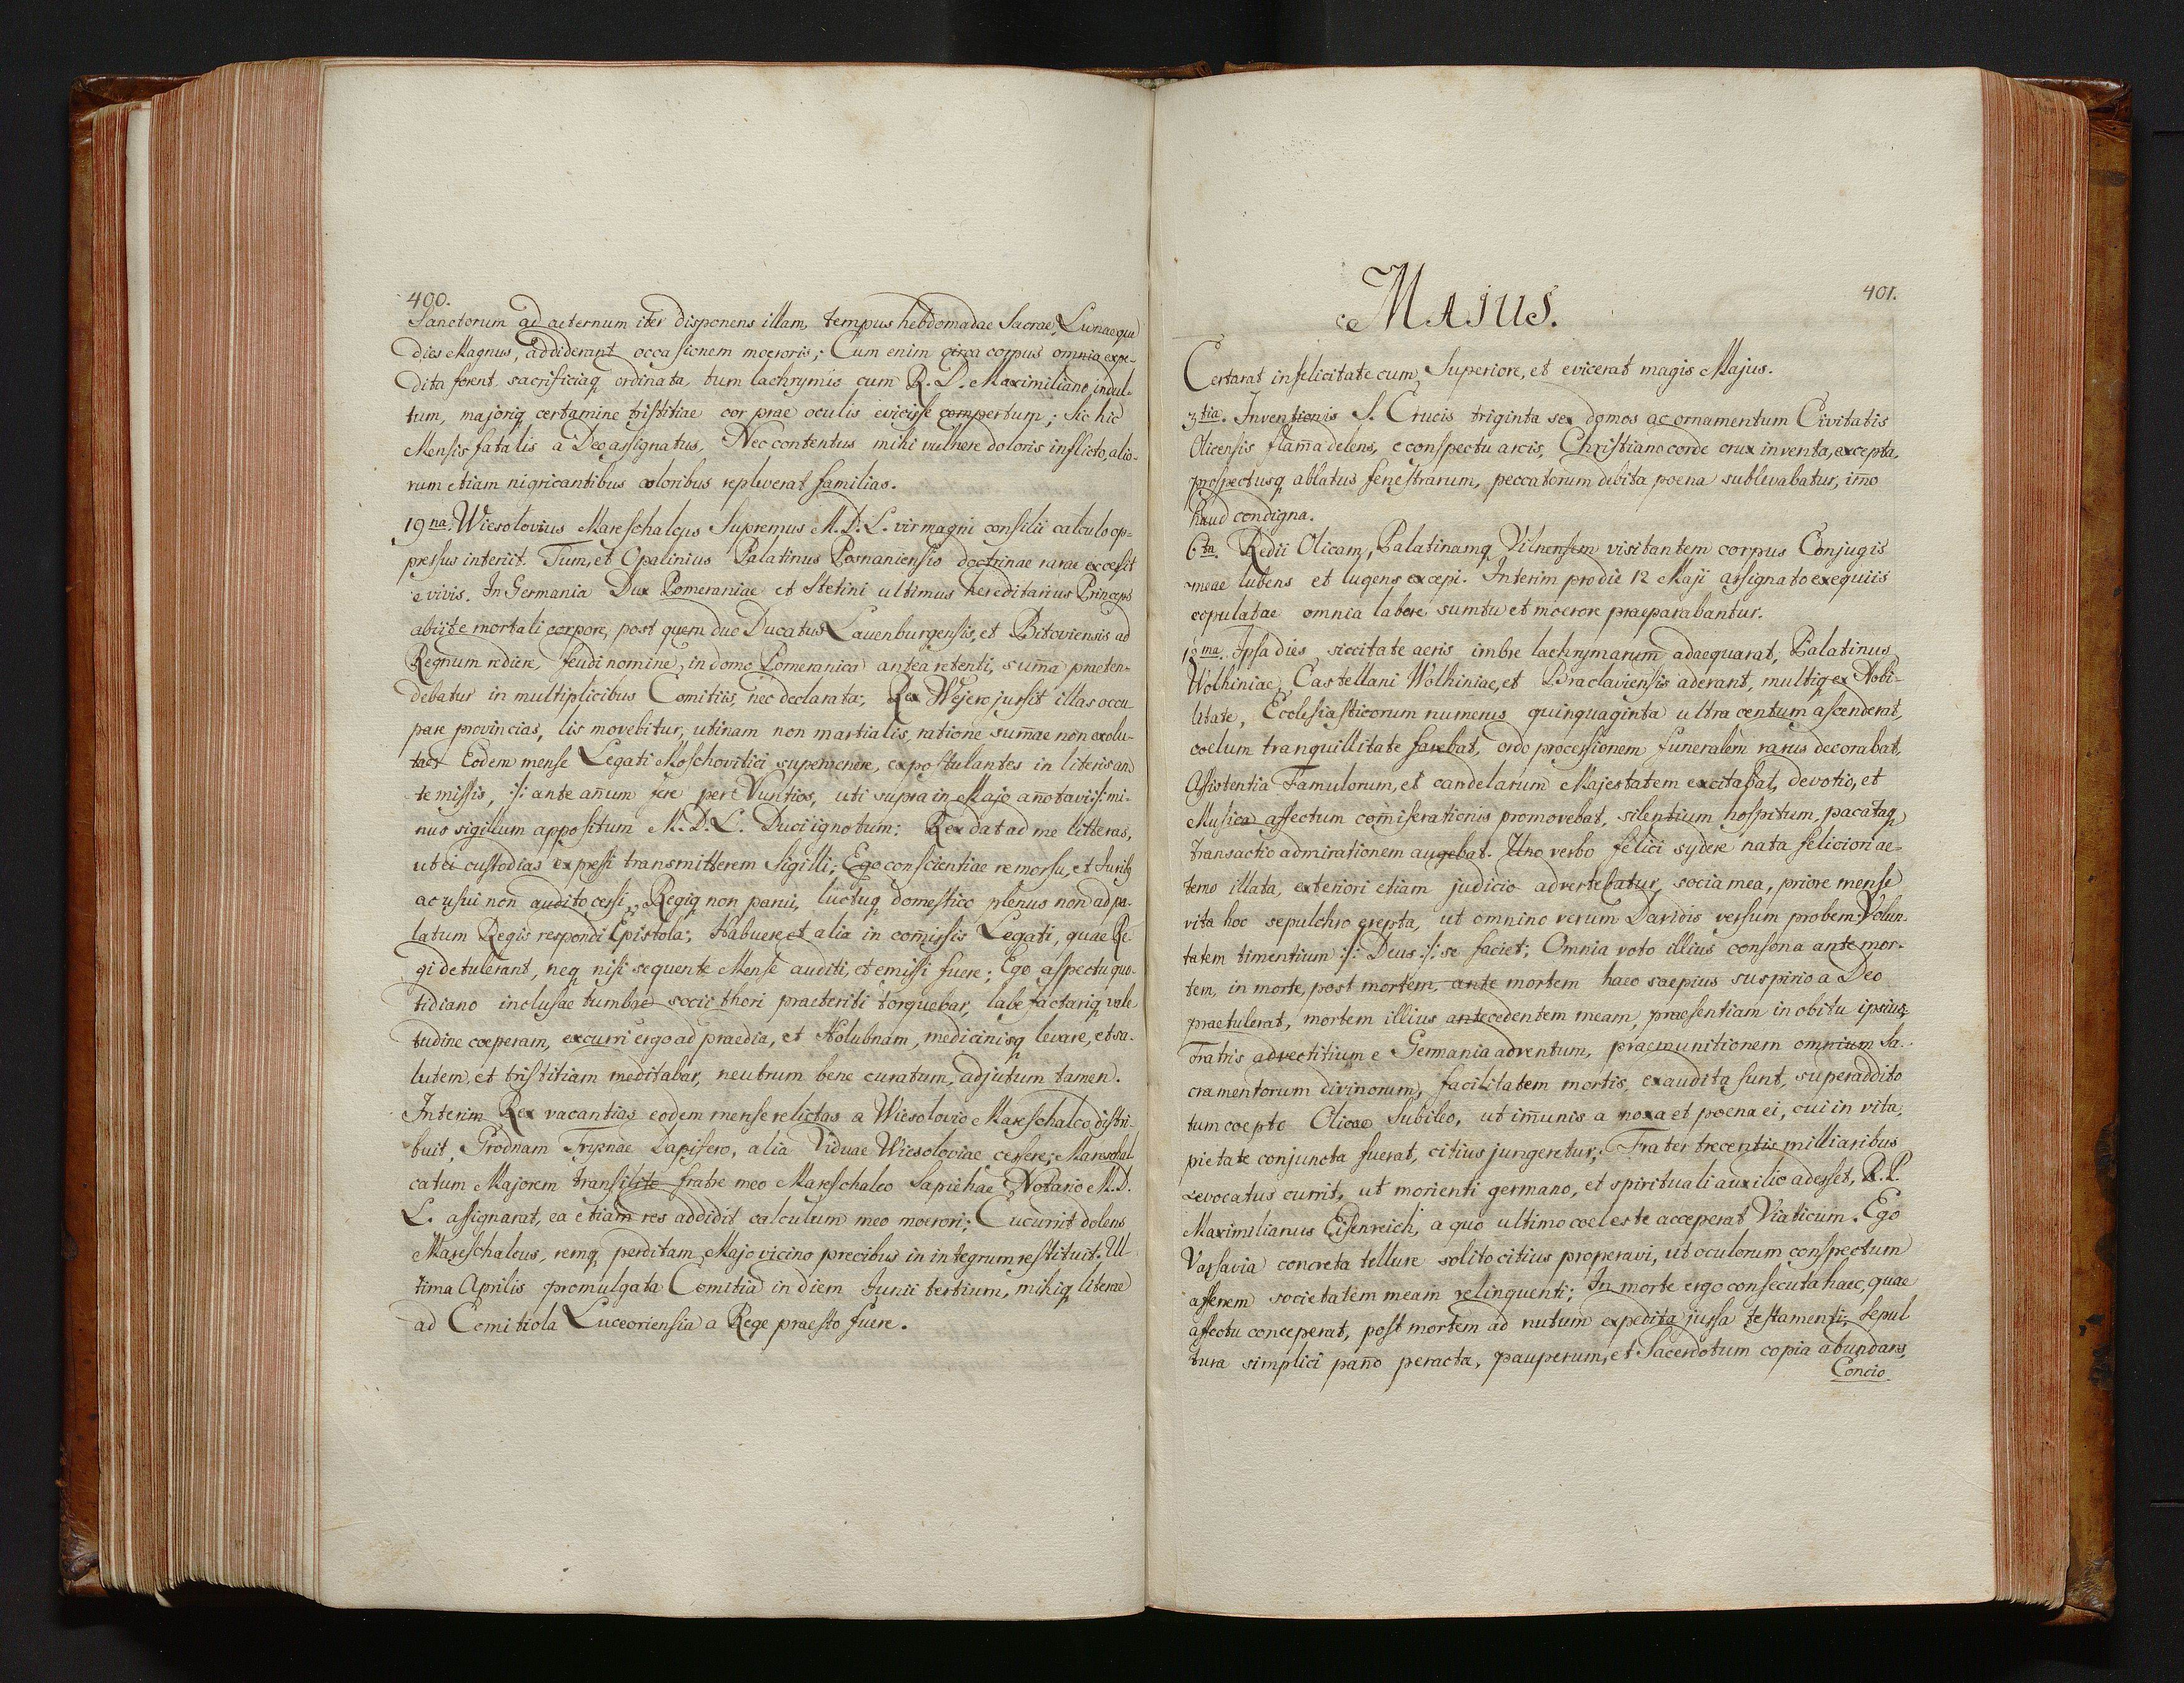 400.
Sanctorum ad aeternum iter disponens illam, tempus hebdomadae Sacrae, Lunaeque
dies Magnus, addiderant occasionem moeroris; Cum enim circa corpus omnia expe-
dita forent, sacrificiaq ordinata, tum lachrymis cum R. D. Maximiliano, indul-
tum, majoriq certamine tristitiae cor prae oculis evicisse compertum; Sic hic
Mensis fatalis a Deo assignatus, Nec contentus mihi vulnere doloris inflicto, alio-
rum etiam nigricantibus coloribus repleverat familias.
19na. Wiesolovius Mareschalcus Supremus M. D. L. vir magni consilii calculo op-
pressus interiit. Tum, et Opalinius Palatinus Posnaniensis doctrinae rarae excessit
e vivis. In Germania Dux Pomeraniae et Stetini ultimus hereditarius Princeps
abiit e mortali corpore, post quem duo Ducatus Lauenburgensis, et Bitoviensis ad
Regnum rediere, feudi nomine, in domo Pomeranica antea retenti, suma praeten-
debatur in multiplicibus Comitiis, nec declarata; Rex Wejero jussit illas occu-
pare provincias, lis movebitur, utinam non martialis, ratione sumae non exolu-
tae. Eodem mense Legati Moschovitici supervenere, expostulantes in literis an-
te missis, :/: ante anum fere per Nuntios, uti supra in Majo anotavi :/: mi-
nus sigillum appositum M. D. L. Duci ignotum; Rex dat ad me litteras,
ut ei custodias expressi transmitterem Sigilli; Ego conscientiae remorsu, et Juribq
ac usui non audito cessi, Regiq non parui, luctuq domestico plenus non ad pa-
latum Regis respondi Epistola; Habuere et alia in comissis Legati, quae Re-
gi detulerant, neq nisi sequente Mense auditi, et emissi fuere; Ego aspectu quo-
tidiano inclusae tumbae socii thori praeteriti torquebar, labefactariq vale
tudine coeperam, excurri ergo ad praedia, et Holubnam, medicinisq levare, et sa-
lutem, et tristitiam meditabar, neutrum bene curatum, adjutum tamen.
Interim Rex vacantias eodem mense relictas a Wiesolovio Mareschalco distri-
buit, Grodnam Tryznae Dapifero, alia Viduae Wiesoloviae cessere; Mareschal-
catum Majorem transilite fratre meo Mareschalco Sapiehae Notario M. D.
L. assignarat, ea etiam res addidit calculum meo moerori; Cucurrit dolens
Mareschalcus, remq perditam Majo vicino precibus in integrum restituit; Ul-
tima Aprilis promulgata Comitia in diem Junii tertium, mihiq literae
ad Comitiola Luceoriensia a Rege praesto fuere.
401.
MAJUS.
Certarat infelicitate cum Superiore, et evicerat magis Majus.
3tia. Inventionis S. Crucis triginta sex domos ac ornamentum Civitatis
Olicensis flama delens, e conspectu arcis, Christiano corde crux inventa, excepta,
prospectusq ablatus fenestrarum, peccatorum debita poena sublevabatur, imo
haud condigna.
6ta. Redii Olicam, Palatinamq Vilnensem visitantem corpus Conjugis
meae lubens et lugens excepi. Interim pro die 12 Maji assignato exequiis
copulatae omnia labore sumtu et moerore praeparabantur.
12ma. Ipsa dies siccitate aeris imbre lachrymarum adaequarat, Palatinus
Wolhiniae, Castellani Wolhiniae, et Braclaviensis aderant, multiq ex Nobi-
litate, Ecclesiasticorum numerus quinquaginta ultra centum ascenderat,
coelum tranquillitate favebat, ordo processionem funeralem rarus decorabat,
Assistentia Famulorum, et candelarum Majestatem excitabat, devotio, et
Musica affectum comiserationis promovebat, silentium hospitum, pacataq
transactio admirationem augebat. Uno verbo felici sydere nata feliciori ae-
terno illata, exteriori etiam judicio advertebatur, socia mea, priore mense
vita hoc sepulchro erepta, ut omnino verum Davidis versum probem: Volun-
tatem timentium :/: Deus :/: se faciet; Omnia voto illius consona ante mor-
tem, in morte, post mortem, ante mortem haec saepius suspirio a Deo
praetulerat, mortem illius antecedentem meam, praesentiam in obitu ipsius
Fratris advectitium e Germania adventum, praemunitionem omnium Sa-
cramentorum divinorum, facilitatem mortis, exaudita sunt, superaddito
tum coepto Olicae Jubileo, ut imunis a noxa et poena ei, cui in vita
pietate conjuncta fuerat, citius jungeretur; Frater trecentis milliaribus
evocatus currit, ut morienti germano, et spirituali auxilio adesset, R. P.
Maximilianus Eisenreich, a quo ultimo coeleste acceperat Viaticum. Ego
Varsavia concreta tellure solito citius properavi, ut oculorum conspectum
afferem societatem meam relinquenti; In morte ergo consecuta haec, quae
affectu conceperat, post mortem ad nutum expedita jussa testamenti, Sepul
tura simplici pano peracta, pauperum, et Sacerdotum copia abundans,
Concio